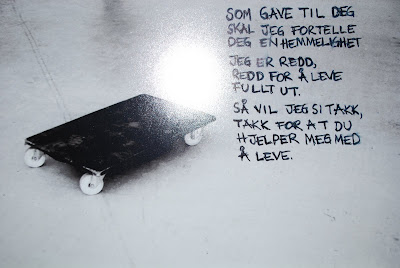 SOM GAVE TIL DEG
SKAL JEG FORTELLE
DEG EN HEMMELIGHET
JEG ER REDD,
REDD FOR Å LEVE
FULLT UT.
SÅ VIL JEG SI TAKK,
TAKK FOR AT DU
HJELPER MEG MED
Å LEVE.